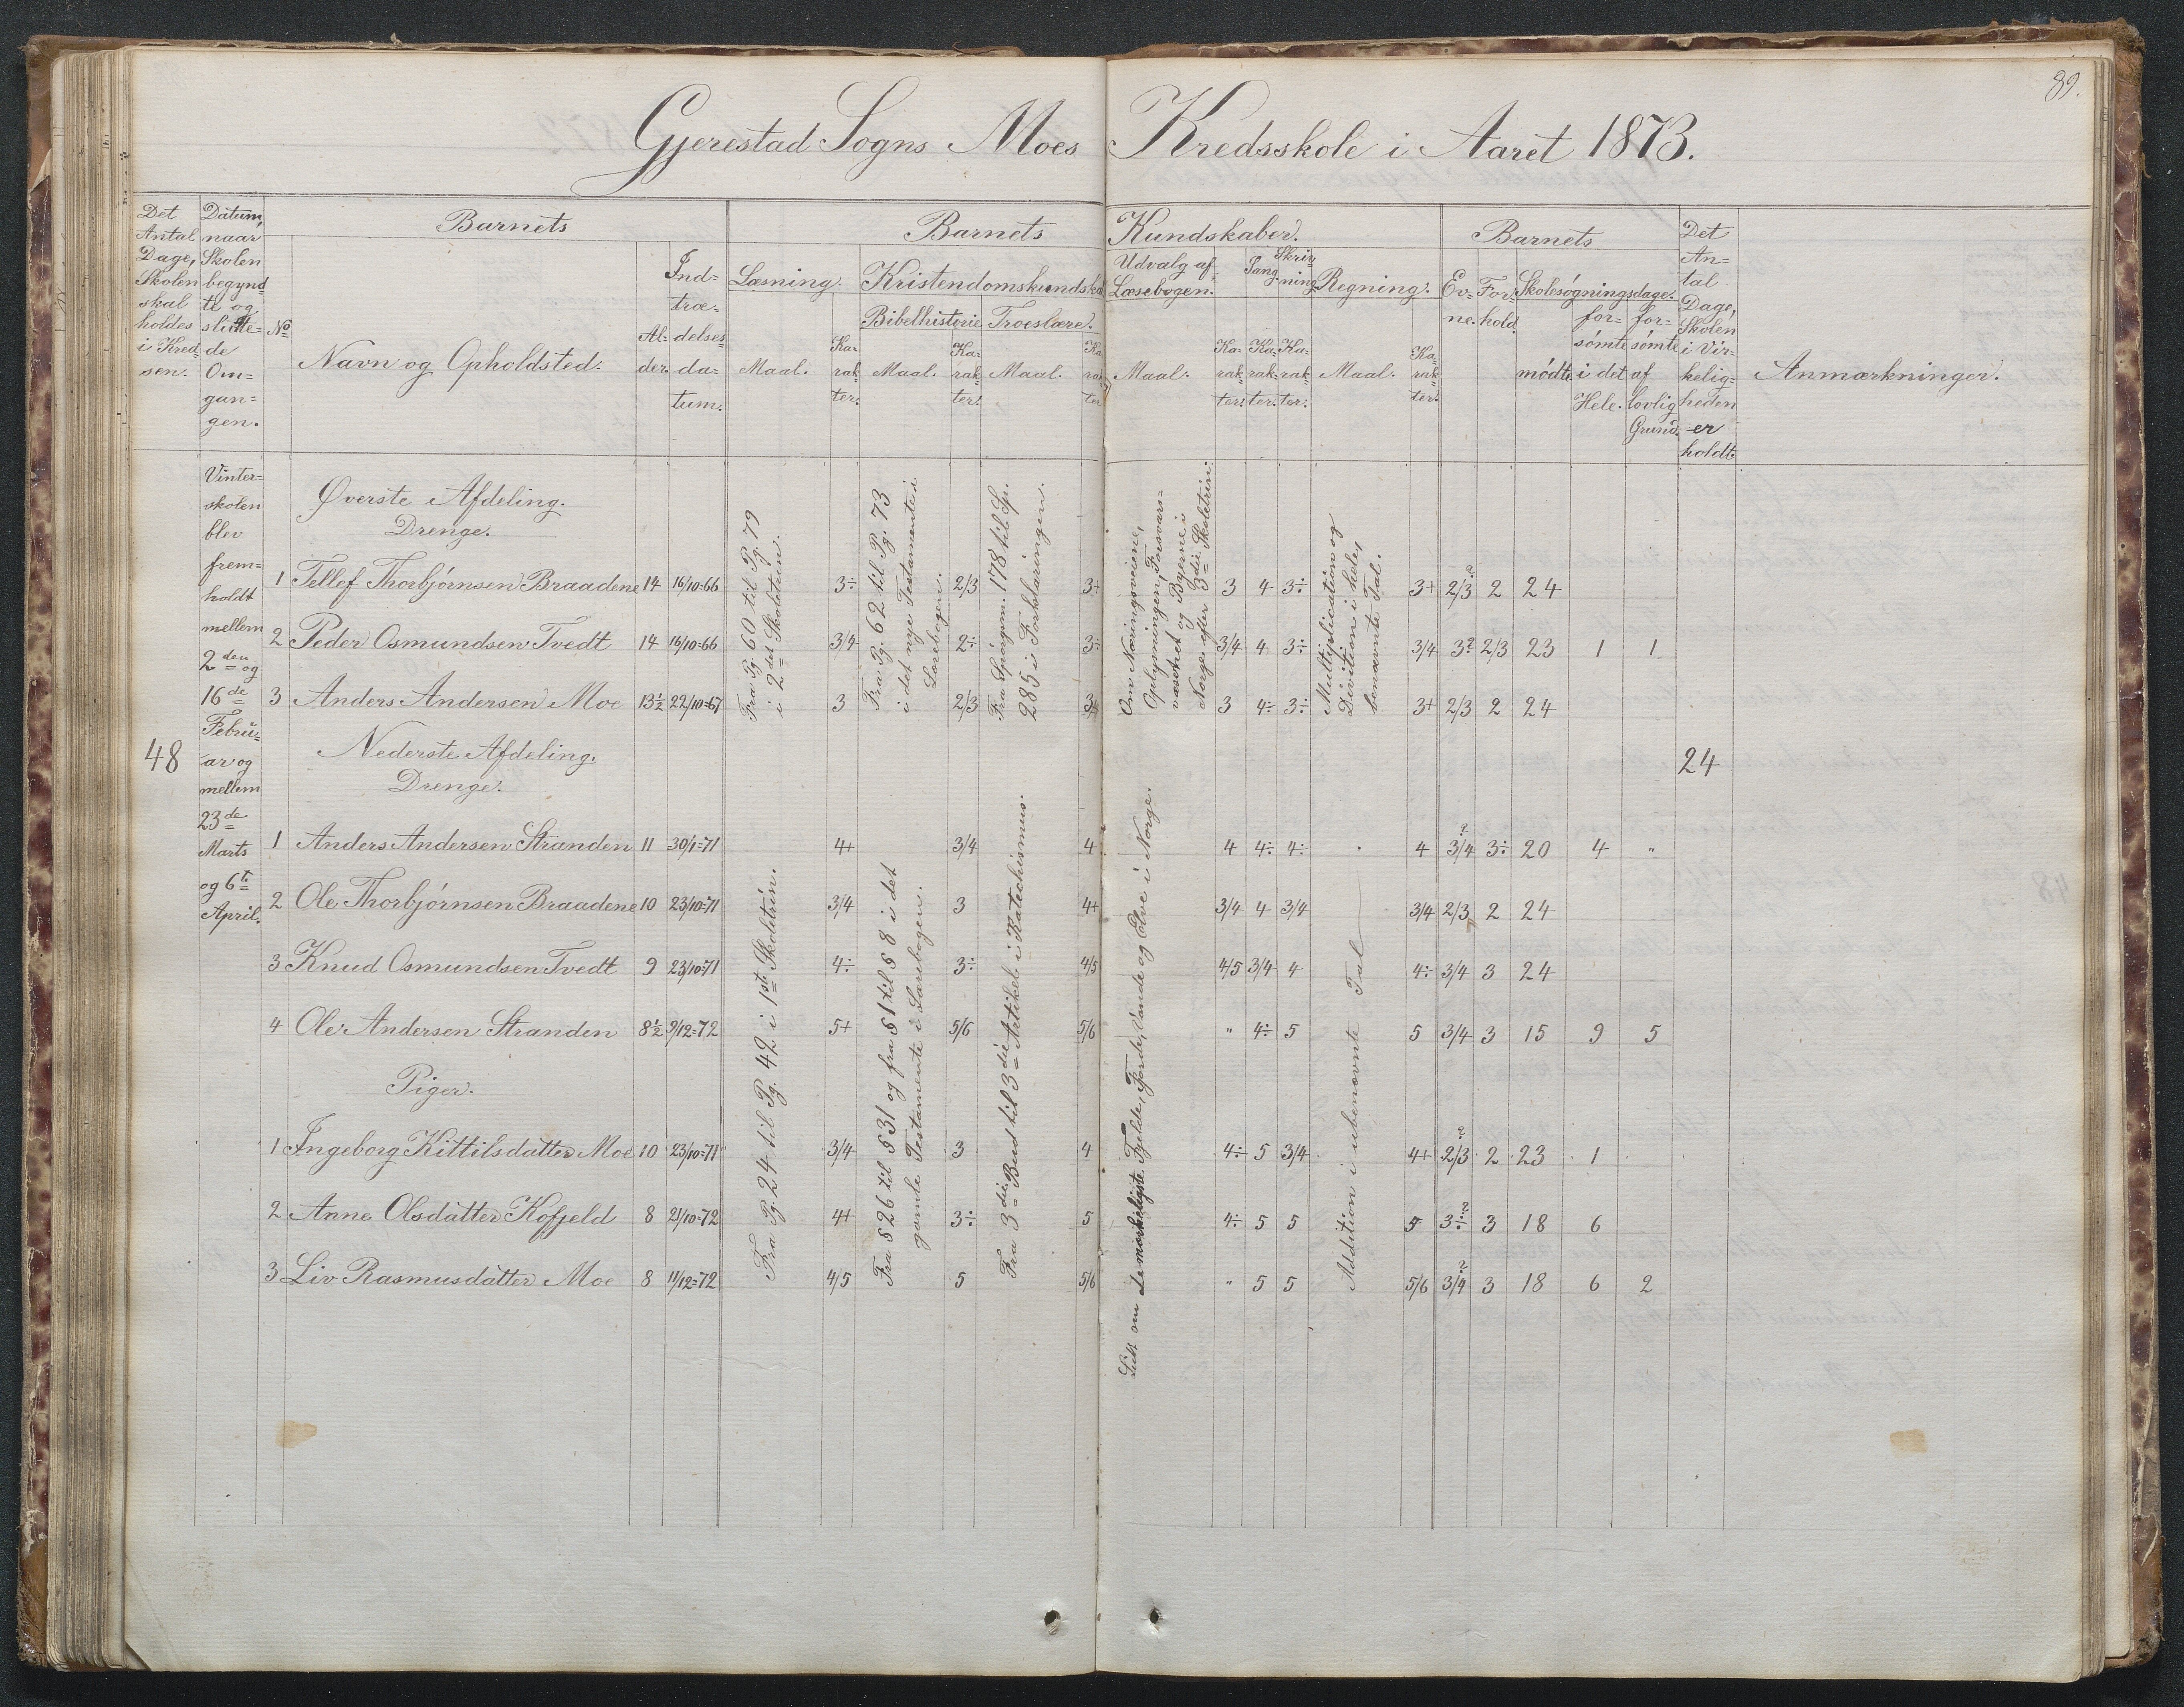 89.
Gjerestad Sogns Moes Kredsskole i Aaret 1873.
Det Antal Dage, Skolen skal holdes i Kredsen.
Datum, naar Skolen begyndte og sluttede Omgangen.
Barnets
No
Navn og Opholdsted.
Alder.
Indtrædelsesdatum.
Barnets Kundskaber.
Læsning.
Maal.
Karakter.
Kristendomskundskab
Bibelhistorie
Maal.
Karakter.
Troeslære.
Maal.
Karakter
Udvalg af Læsebogen.
Maal.
Karakter.
Sang
Karakter.
Skrivning
Karakter.
Regning.
Maal.
Karakter.
Barnets
Evne.
Forhold.
Skolesøgningsdage.
mødte.
forsømte i det Hele.
forsømte af lovlig Grund.
Det Antal Dage, Skolen i Virkeligheden er holdt.
Anmærkninger.
48
Vinter=
skolen
blev
frem=
holdt
mellem
2den og
16de
Febru=
ar og
mellem
23de
Marts
og 6te
April.
Øverste Afdeling.
Drenge.
Fra Pg. 60 til Pg. 79
i 2det Skoletrin.
Fra Pg. 62 til Pg. 73
i det nye Testamente i
Lærebogen.
Fra Spørgsm. 178 til Sp.
285 i Forklaringen.
Om Næringsveiene,
Oplysningen, Forsvars=
væsenet og Byerne i
Norge efter 3die Skoletrin.
Multiplication og
Division i hele,
benævnte Tal.
1 Tellef Thorbjørnsen Braadene 14 16/10=66 3÷ 2/3 3+ 3 4 3÷ 3+ 2/3? 2 24
2 Peder Osmundsen Tvedt 14 16/10=66 3/4 2÷ 3÷ 3/4 4 3÷ 3/4 3? 2/3 23 1 1
3 Anders Andersen Moe 13½ 22/10=67 3 2/3 3 4÷ 3÷ 3+ 2/3 2 24
Nederste Afdeling.
Drenge.
24
Fra Pg. 24 til Pg. 42 i 1ste Skoletrin.
Fra § 26 til § 31 og fra § 1 til § 8 i det
gamle Testamente i Lærebogen.
Fra 3die Bud til 3die Artikel i Katechismus.
Lidt om de mærkeligste Fjelde, Fjorde, Vande og Elve i Norge.
Addition i ubenævnte Tal
1 Anders Andersen Stranden 11 30/1=71 4+ 3/4 4 4 4÷ 4÷ 4 3/4? 3÷ 20 4 "
2 Ole Thorbjørnsen Braadene 10 23/10=71 3/4 3 4+ 3/4 4 3/4 3/4 2/3 2 24
3 Knud Osmundsen Tvedt 9 23/10=71 4÷ 3÷ 4/5 4/5 3/4 4 4÷ 3/4 3 24
4 Ole Andersen Stranden 8½ 9/12=72 5+ 5/6 5/6 " 4÷ 5 5 3/4 3 15 9 5
Piger.
1 Ingeborg Kittilsdatter Moe 10 23/10=71 3/4 3 4 4÷ 5 3/4 4+ 2/3? 2 23 1
2 Anne Olsdatter Kofjeld 8 21/10=72 4+ 3÷ 5 4÷ 5 5 5 3÷? 3 18 6
3 Liv Rasmusdatter Moe 8 11/12=72 4/5 5 5/6 " 5 5 5/6 3/4? 3 18 6 2